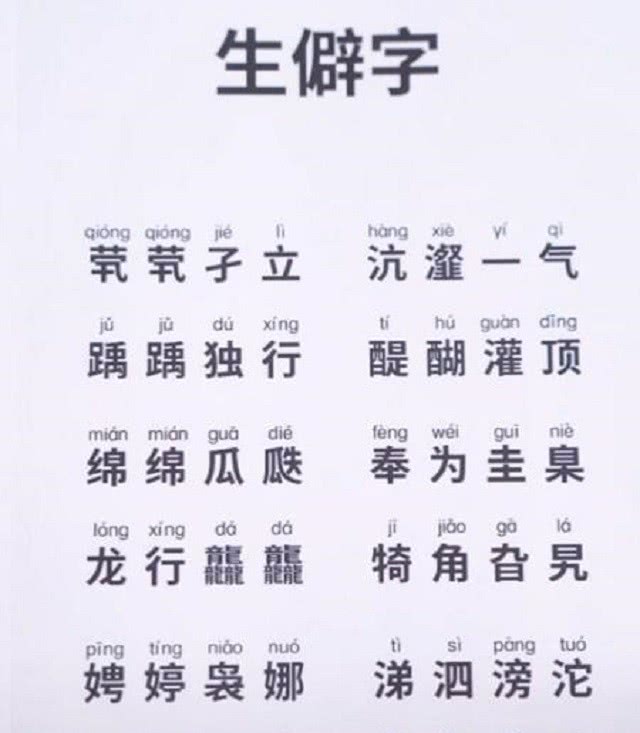 生僻字
qióng qióng jié lì hàng xiè yí qì
茕茕孑立 沆瀣一气
jǔ jǔ dú xíng tí hú guàn dǐng
踽踽独行 醍醐灌顶
mián mián guā dié fèng wéi guī niè
绵绵瓜瓞 奉为圭臬
lóng xíng dá dá jī jiǎo gā lá
龙行龘龘 犄角旮旯
pīng tíng niǎo nuó tì sì pāng tuó
娉婷袅娜 涕泗滂沱